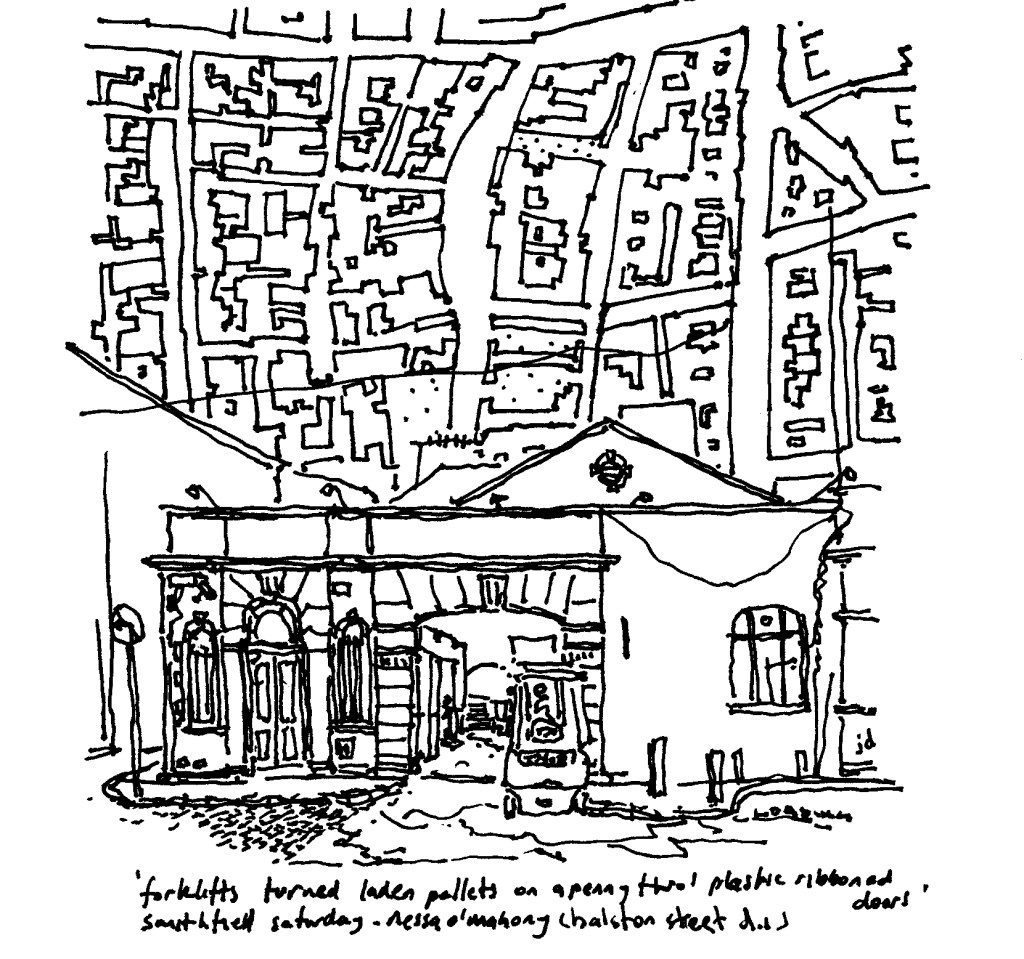 jd
'forklifts turned laden pallets on a penny thro' plastic ribboned
doors'
smithfield saturday - nessa o'mahony (halston street d.7)